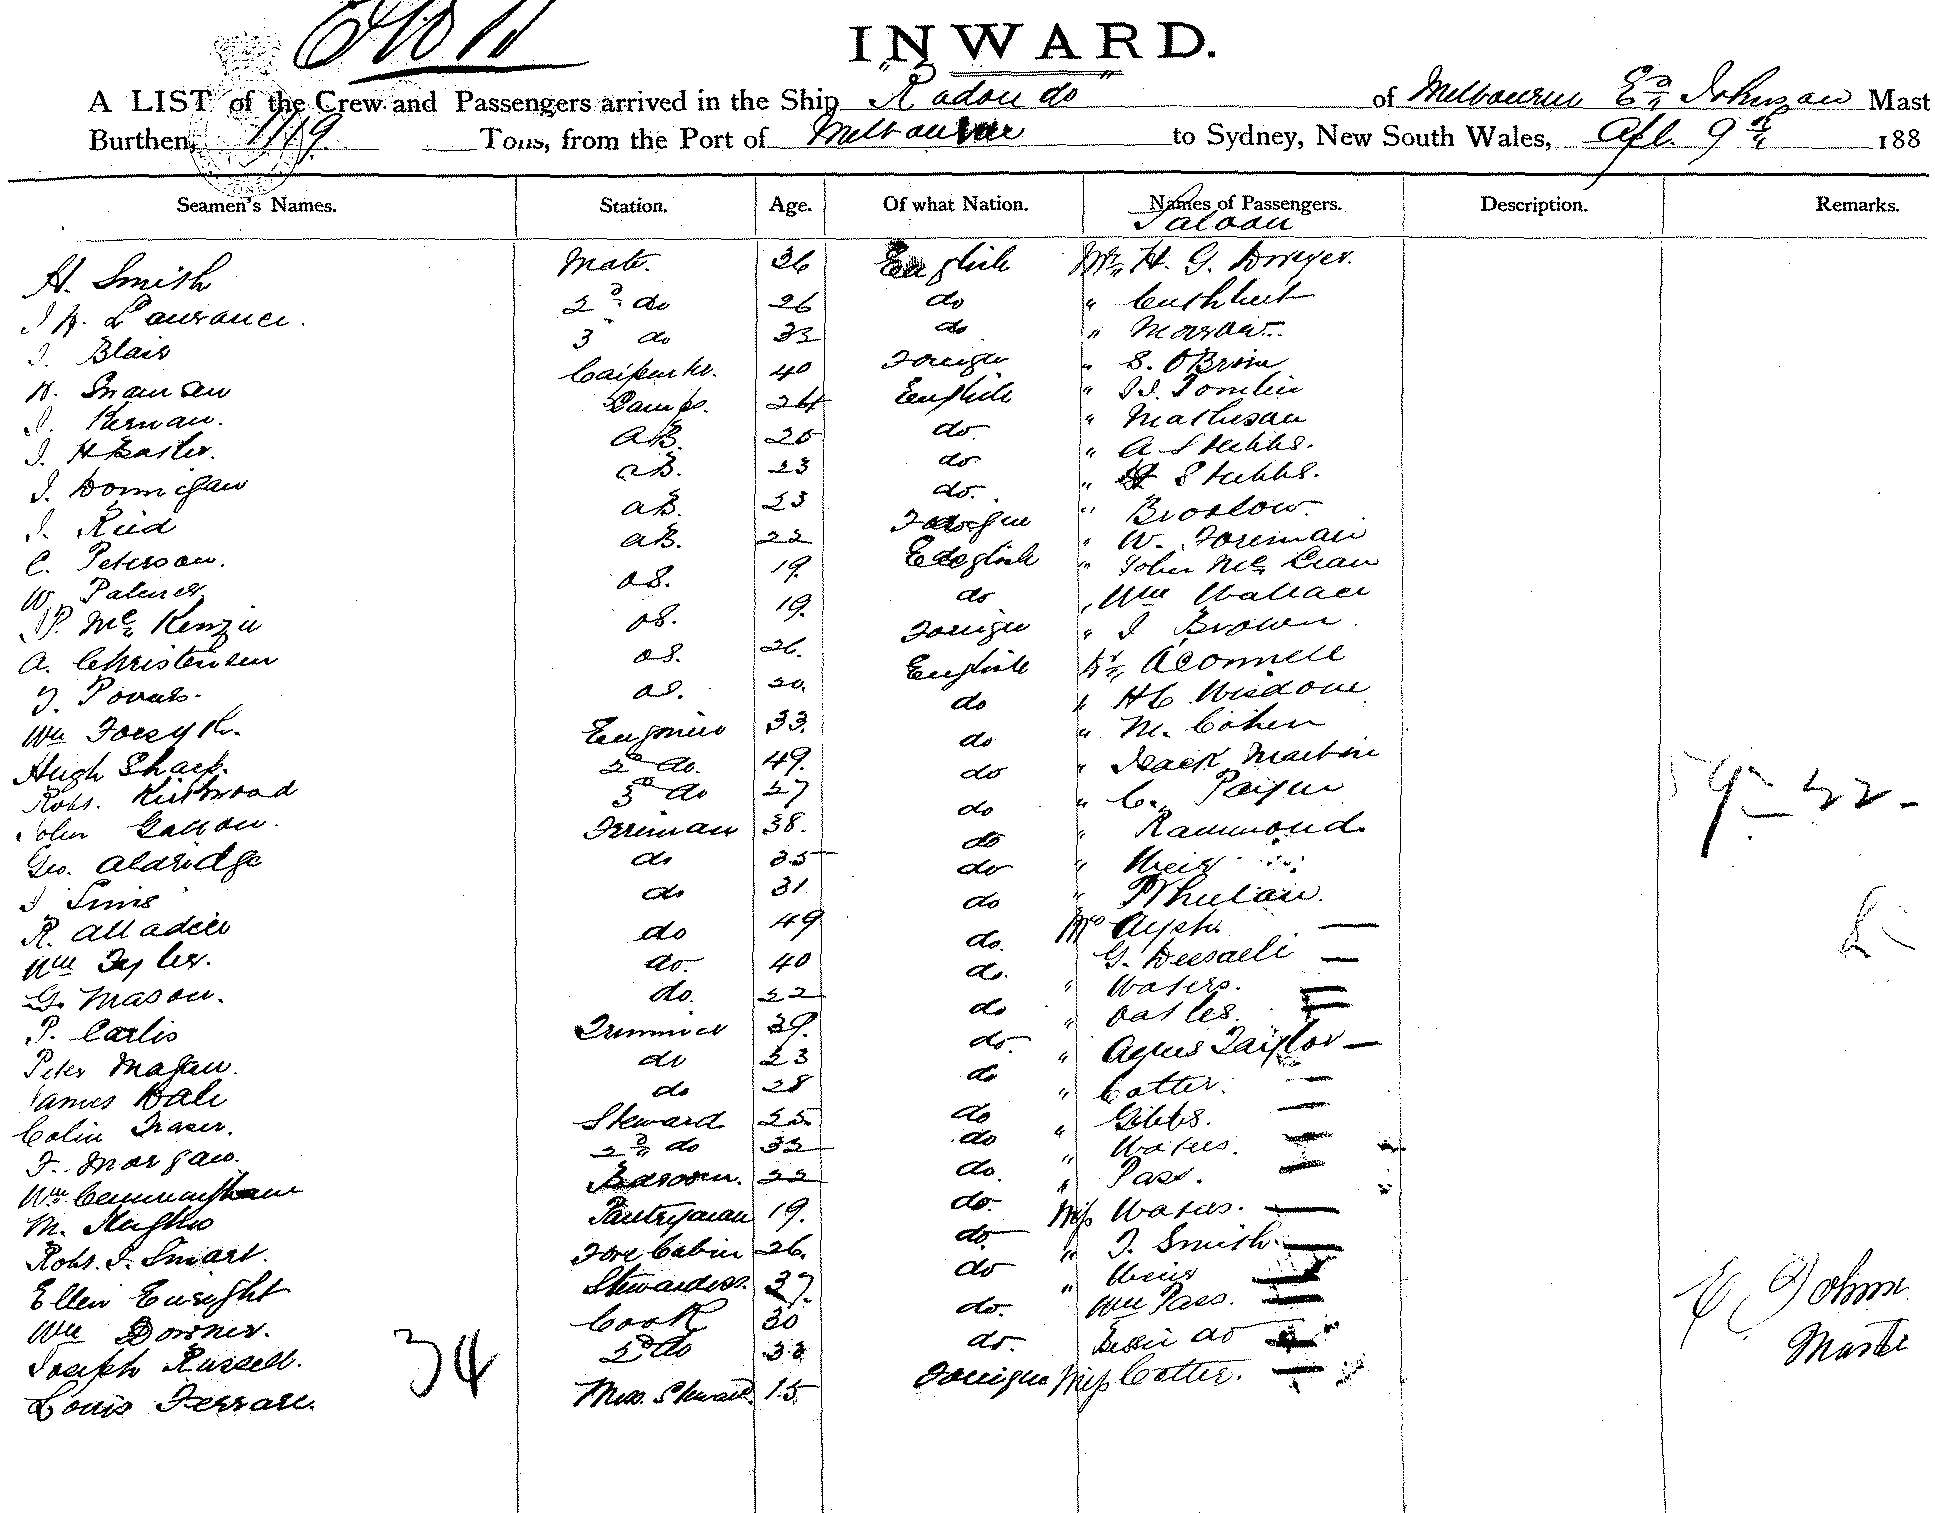 INWARD.
A LIST of the Crew and Passengers arrived in the Ship Rodondo of Melbourne Johnson Mast
Burthen, 1119 Tons, from the Port of Melbourne to Sydney, New South Wales, Apl. 9th 188
Seamen's Names. Station. Age. Of what Nation. Names of Passengers. Description. Remarks.
Saloon
H. Smith Mate. 36 English Mr H. G. Dwyer.
Laurance. 2nd do 26 do " Cuthbert
J. Blair 3 do 33 do " Morrow
Carpenter. 40 Foreign " S. OBrien
J. Kernan. Lamps. 24 English " Tomlin
J. AB. 25 do " Matheson
J. Donnigan AB. 23 do " A Stubbs.
J. Reid AB. 23 do. " Stubbs.
C. Peterson. AB. 22 Foreign " Broslow.
W. Palmer OS. 19. English " W. Foreman
Mc Kenzie OS. 19. do " John Mc Crae
A. Christensen OS. 26. Foreign " Wm Wallace
OS. 20. English " J Brown.
Wm Forsyth. Engineer 33. do Dr OConnell
Hugh Sharp. 2nd do. 49. do " HC Wisdome
Robt. Kirkwood 3d do 27 do " M. Cohen
John Fireman 38. do " Isack Martin
Geo. Aldridge do 35 do " C. Payne
J Sims do 31 do " Rammond
R. do 49 do " Weir
Wm Tyler. do. 40 do. " Whelan.
G. Mason. do. 22 do. Mrs
P. Carlis Trimmer 39. do G.
Peter Magan. do 23 do. " Waters.
James Dale do 28 do " Oatles.
Colin Fraser. Steward 25. do " Agnes Taylor
F. Morgan. 2nd do 32 do " Cotter.
Wm Cunningham 22 do. " Gibbs.
M. Hughes Pantryman 19. do. " Waters.
Robt. J. Smart. Fore Cabin 26. do " Pass.
Ellen Enright Stewardess. 37. do Miss Waters.
Wm Downer. Cook 30 do. " J. Smith.
Joseph Russell. 2d do 33 do. " Weir
Louis Ferrari. Mess. Steward. 15 Foreign " Wm Pass.
Bessie do
Miss Cotter.
34
E Johnson
Master